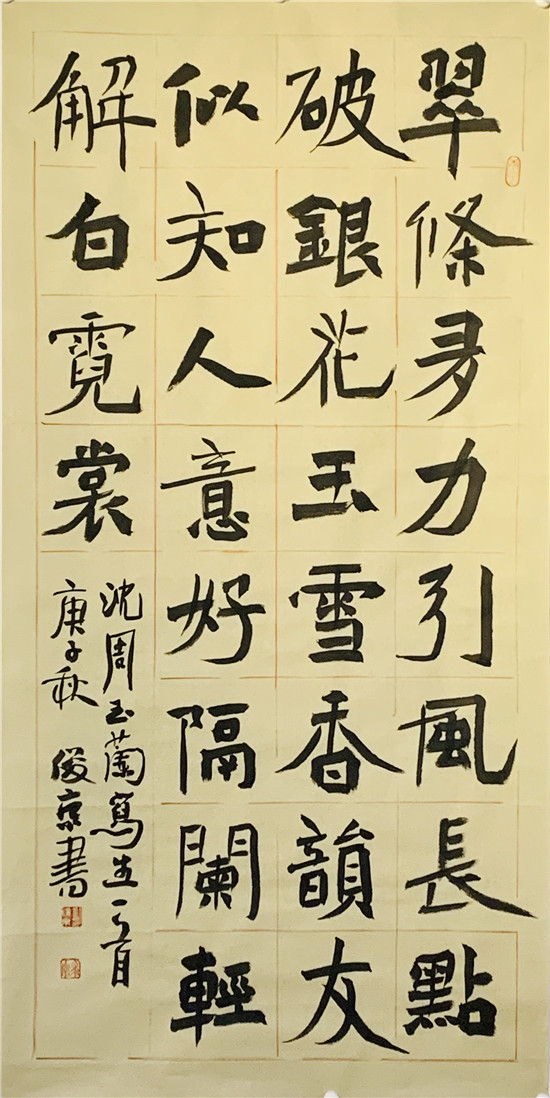 翠條多力引風長點
破銀花玉雪香韻友
似知人意好隔闌輕
解白霓裳
沈周玉蘭寫生一首
庚子秋 俊京書